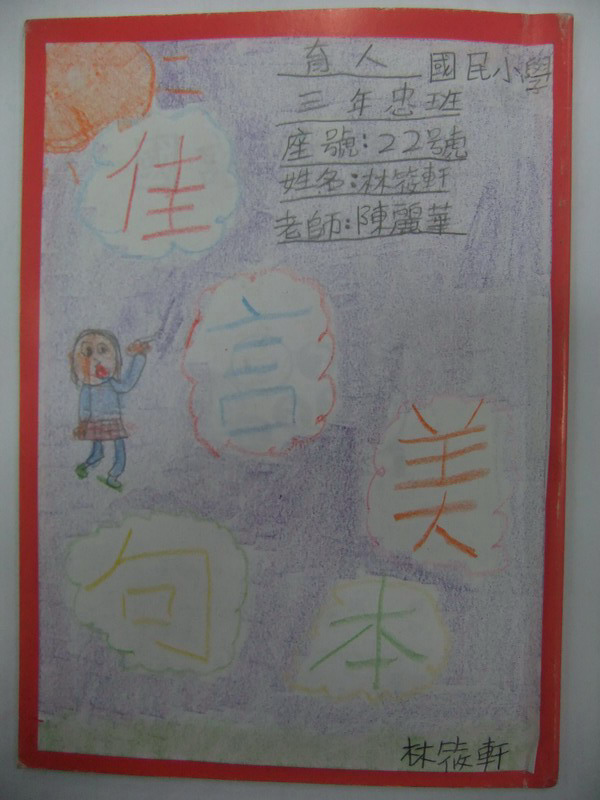 育人 國民小學
三年忠班
座號:22號
姓名:林筱軒
老師:陳麗華
佳
言
美
句
本
林筱軒